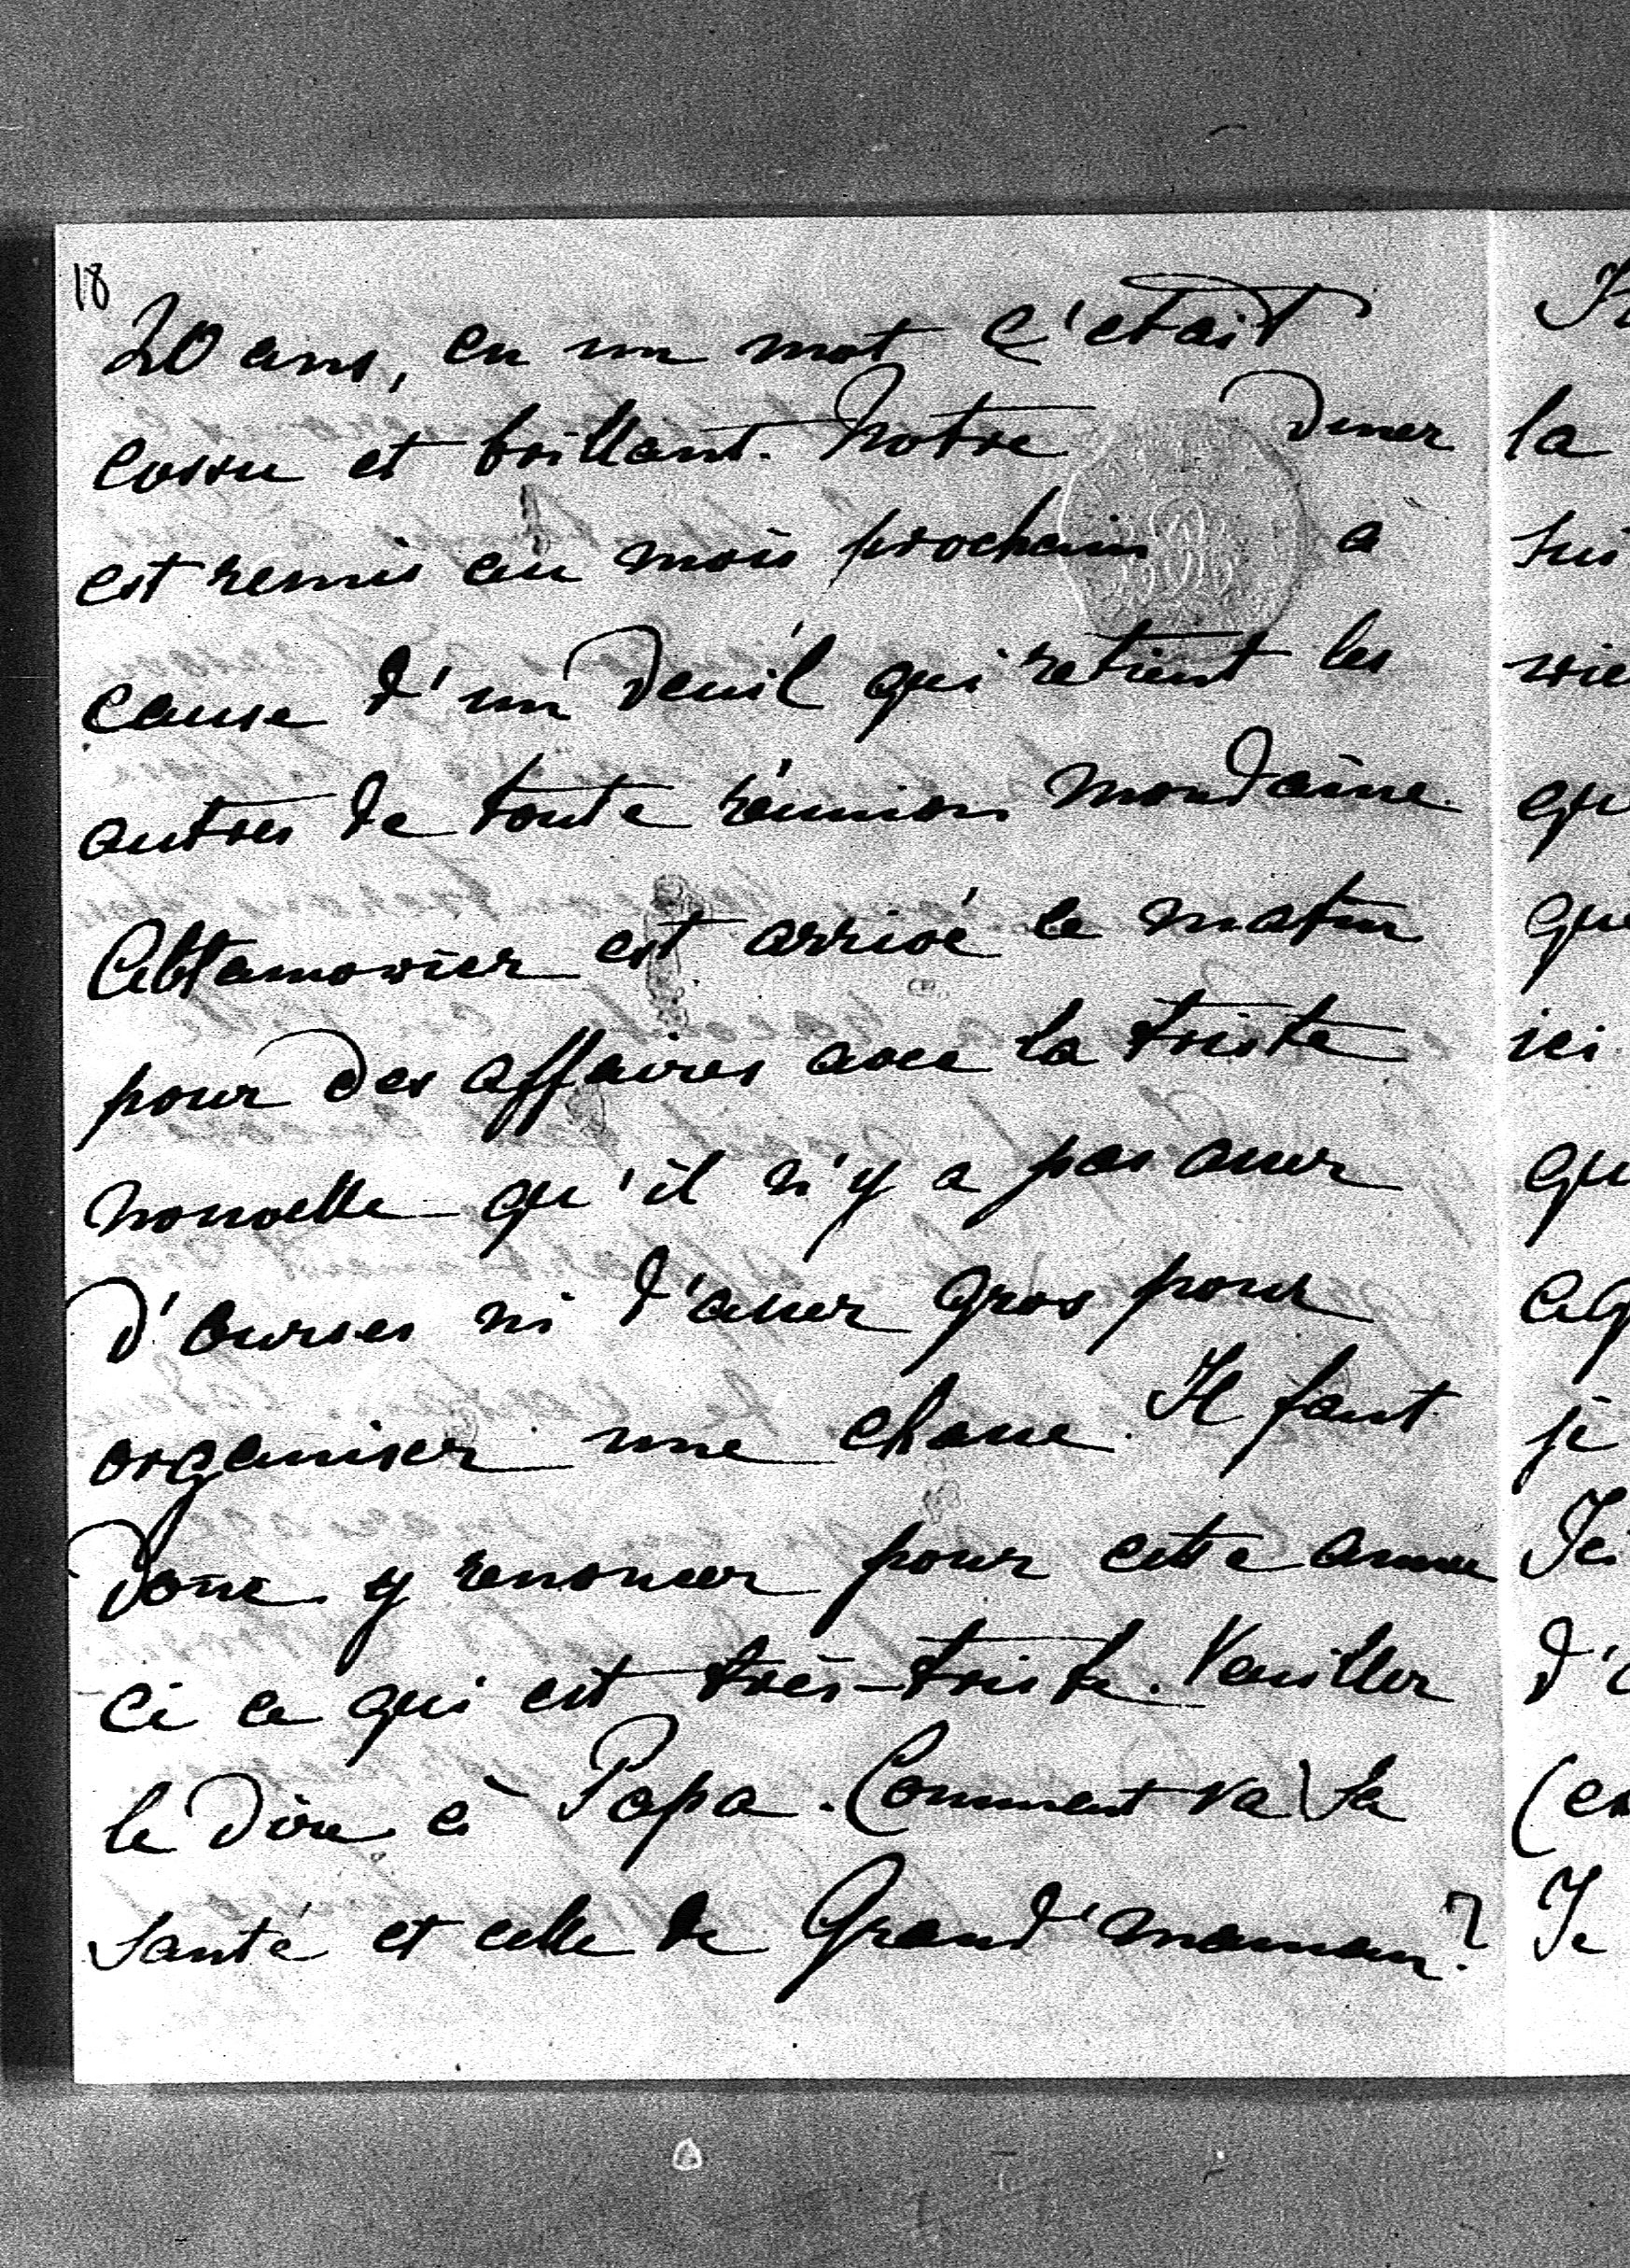 18
20 ans, en un mot c'etait
cossu et brillant. Notre Diner
est remis au mois prochain a
cause d'un Deuil qui retient les
autres de toute réunion mondaine.
est arrivé ce matin
pour des affaires avec la triste
nouvelle qu'il n'y a pas assez
d'ourses ni d'assez gros pour
organiser une chasse. Il faut
Donc y renoncer pour cette annee
ci ce qui est très-triste. Veuillez
le dire à Papa. Comment va sa
Santé et celle de Grand'maman?
la
ici
je
Ici
Je